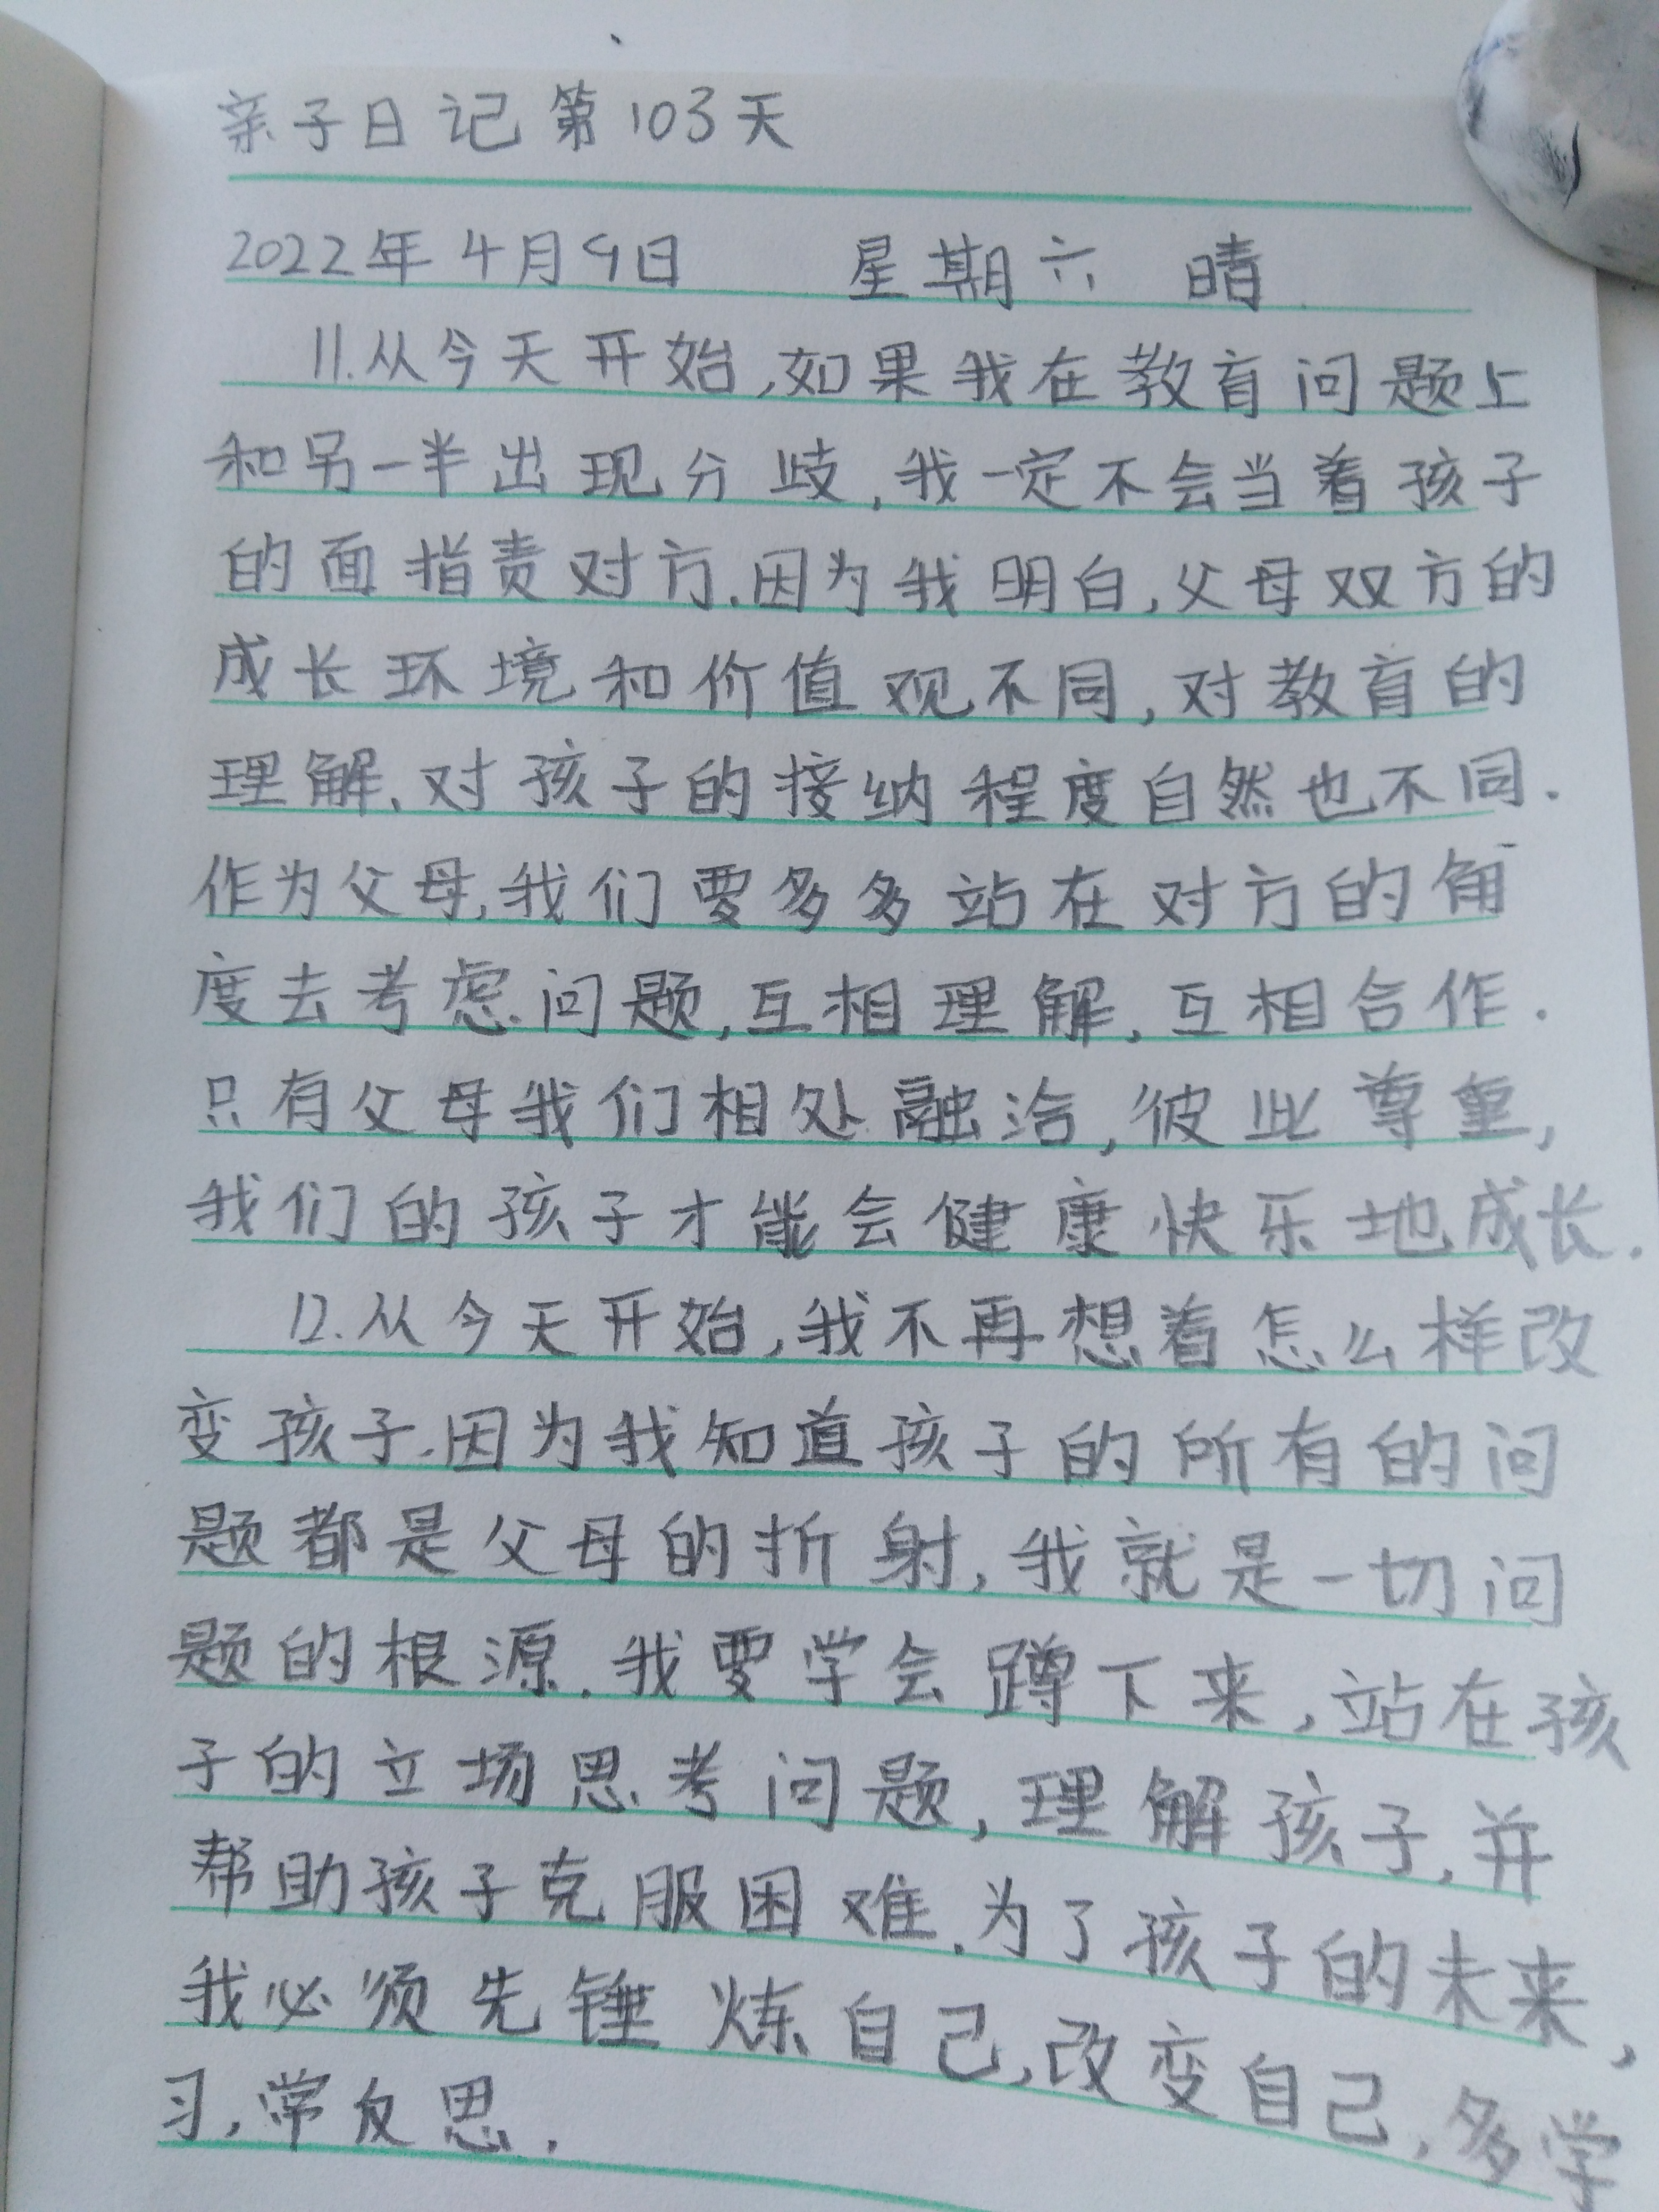 亲子日记第103天
2022年4月9日 星期六 晴
11.从今天开始,如果我在教育问题上
和另一半出现分歧,我一定不会当着孩子
的面指责对方.因为我明白,父母双方的
成长环境和价值观不同,对教育的
理解.对孩子的接纳程度自然也不同.
作为父母,我们要多多站在对方的角
度去考虑问题,互相理解,互相合作.
只有父母我们相处融洽,彼此尊重,
我们的孩子才能会健康快乐地成长.
12.从今天开始,我不再想着怎么样改
变孩子.因为我知道孩子的所有的问
题都是父母的折射,我就是一切问
题的根源.我要学会蹲下来,站在孩
子的立场思考问题,理解孩子,并
帮助孩子克服困难.为了孩子的未来,
我必须先锤炼自己,改变自己,多学
习,常反思.